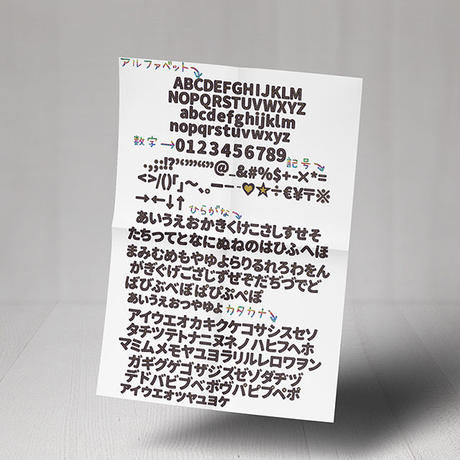 アルファベット
ABCDEFGHIJKLM
NOPQRSTUVWXYZ
abcdefghijklm
nopqrstuvwxyz
数字→0123456789記号
.,;:!?'‘’”“”@_&#%$+-×*=
<>/()「」~、。ー—-♥☆÷€¥〒※
→←↓↑
ひらがな
あいうえおかきくけこさしすせそ
たちつてとなにぬねのはひふへほ
まみむめもやゆよらりるれろわをん
がぎぐげござじずぜぞだぢづでど
ばびぶべぼぱぴぷぺぽ
ぁぃぅぇぉっゃゅょカタカナ
アイウエオカキクケコサシスセソ
タチツテトナニヌネノハヒフヘホ
マミムメモヤユヨラリルレロワヲン
ガギグゲゴザジズゼゾダヂヅ
デドバビブベボヴパピプペポ
ァィゥェォッャュョヶ